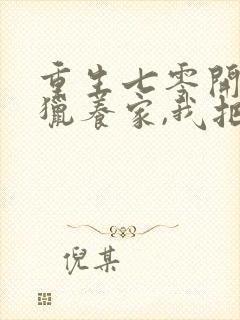 重生七零開
獵養家,我把
倪某